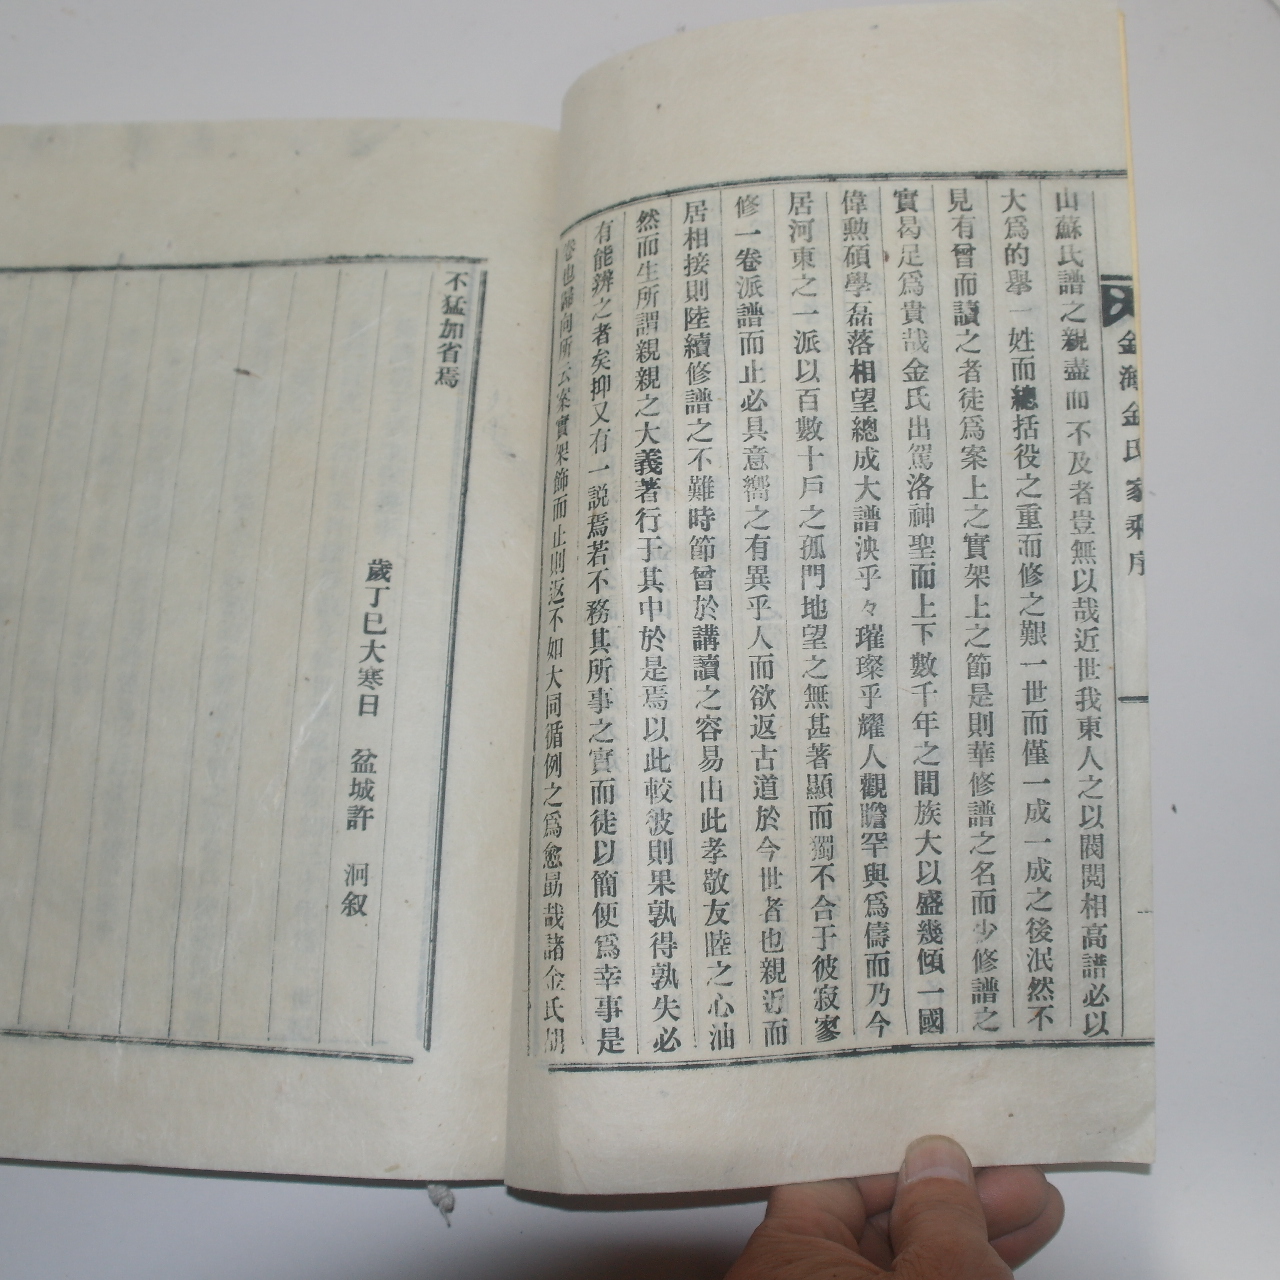 金海金氏家乘序
山蘇氏譜之親盡而不及者豈無以哉近世我東人之以閥閱相高譜必以
大爲的舉一姓而總括役之重而修之艱一世而僅一成一成之後泯然不
見有曾而讀之者徒爲案上之實架上之節是則華修譜之名而少修譜之
實曷足爲貴哉金氏出駕洛神聖而上下數千年之間族大以盛幾傾一國
偉勳碩學磊落相望總成大譜泱乎々璀璨乎耀人觀瞻罕與爲儔而乃今
居河東之一派以百數十戶之孤門地望之無甚著顯而獨不合于彼寂寥
修一卷派譜而止必具意嚮之有異乎人而欲返古道於今世者也親近而
居相接則陸續修譜之不難時節曾於講讀之容易由此孝敬友睦之心油
然而生所謂親親之大義著行于其中於是焉以此較彼則果孰得孰失必
有能辨之者矣抑又有一說焉若不務其所事之實而徒以簡便爲幸事是
卷也歸向所云案實架飾而止則返不如大同循例之爲愈勗哉諸金氏胡
不猛加省焉
歲丁巳大寒日 盆城許 洞叙